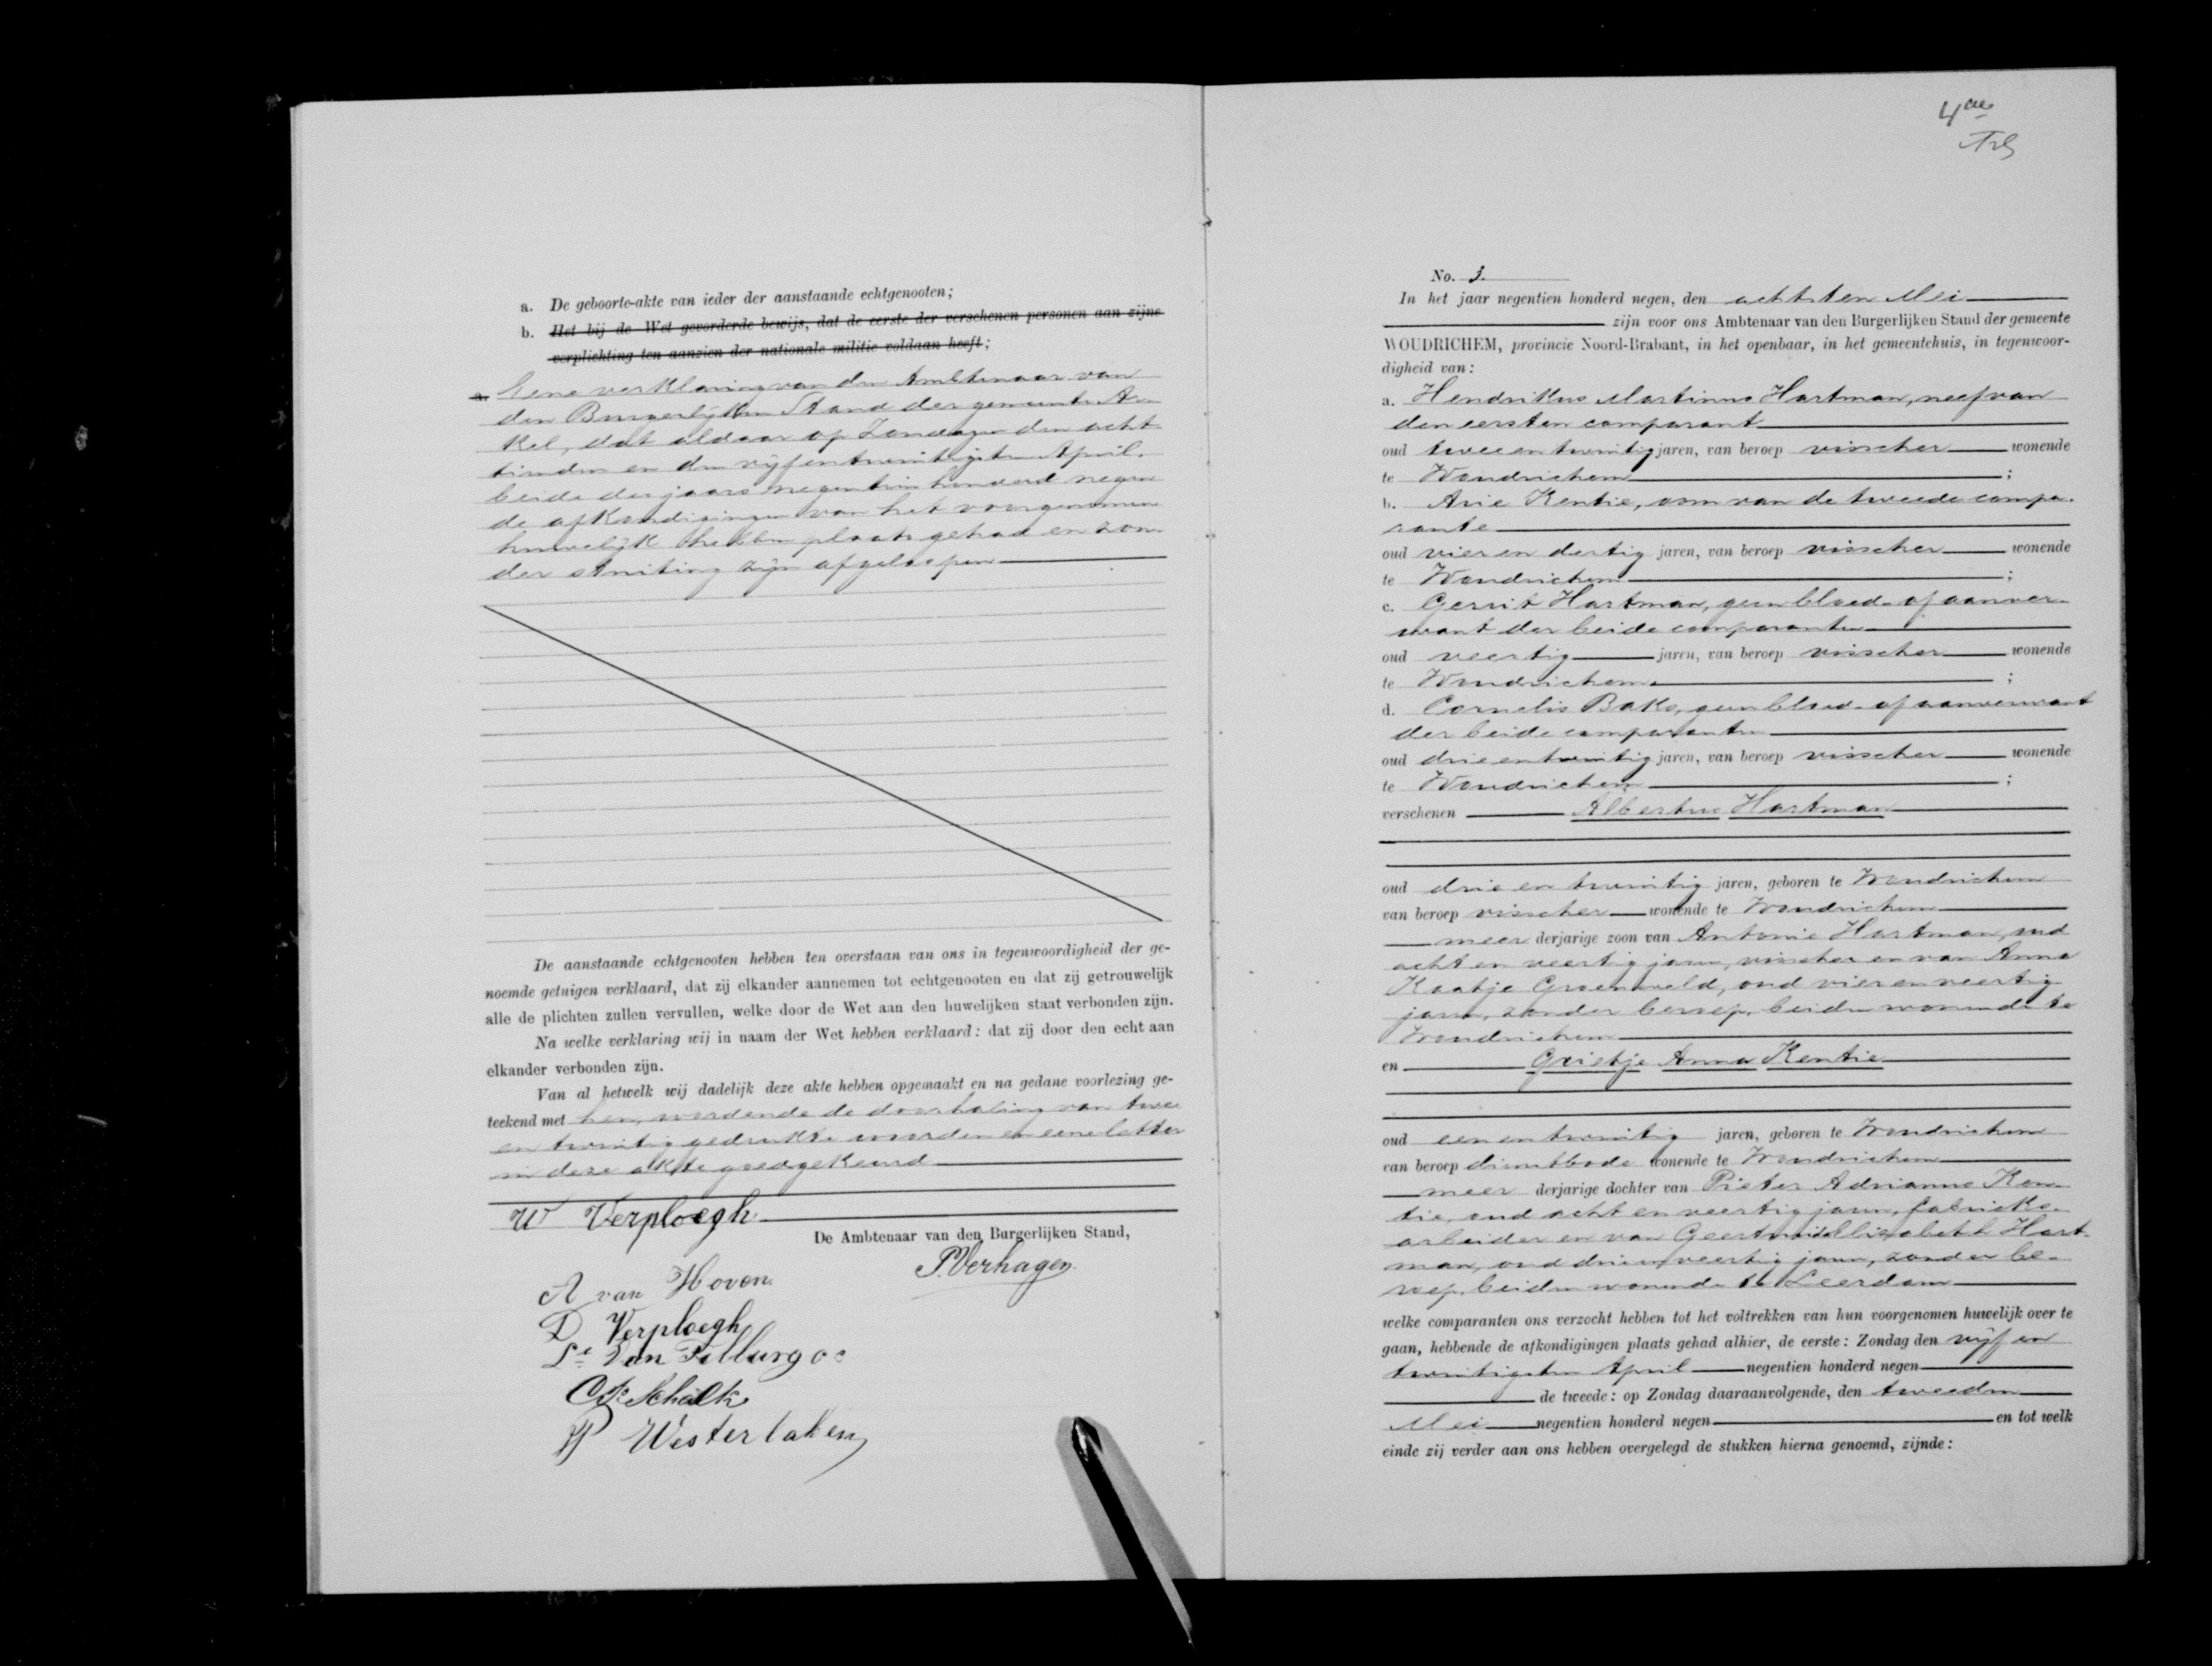 a. De geboorte-akte van ieder der aanstaande echtgenooten;
b. Het bij de Wet gevorderde bewijs, dat de eerste der verschenen personen aan zijne
verplichting ten aanzien der nationale militie voldaan heeft;
a. Eene verklaring van den Ambtenaar van
den Burgerlijken Stand der gemeente Ar-
kel, dat aldaar op Zondagen den acht
tienden en den vijfentwintigsten April
beide des jaars negentienhonderd negen
de afkondigingen van het voorgenomen
huwelijk hebben plaats gehad en zon-
der stuiting zijn afgeloopen
De aanstaande echtgenooten hebben ten overstaan van ons in tegenwoordigheid der ge-
noemde getuigen verklaard, dat zij elkander aannemen tot echtgenooten en dat zij getrouwelijk
alle de plichten zullen vervullen, welke door de Wet aan den huwelijken staat verbonden zijn.
Na welke verklaring wij in naam der Wet hebben verklaard: dat zij door den echt aan
elkander verbonden zijn.
Van al hetwelk wij dadelijk deze akte hebben opgemaakt en na gedane voorlezing ge-
teekend met hen, wordende de doorhaling van twee
en twintig gedrukte woorden en eene letter
in deze akte goedgekeurd
W Verploegh
De Ambtenaar van den Burgerlijken Stand,
P. Verhagen.
A van Hoven
D Verploegh
Van Tilburg
Schalk
P Westerlaken
4de
No. 3.
In het jaar negentien honderd negen, den achtsten Mei
zijn voor ons Ambtenaar van den Burgerlijken Stand der gemeente
WOUDRICHEM, provincie Noord-Brabant, in het openbaar, in het gemeentehuis, in tegenwoor-
digheid van:
a. Hendrikus Martinus Hartman, neef van
den eersten comparant
oud twee en twintig jaren, van beroep visscher wonende
te Woudrichem ;
b. Arie Kentie, oom van de tweede compa-
rante
oud vier en dertig jaren, van beroep visscher wonende
te Woudrichem ;
c. Gerrit Hartman, geen bloed- of aanver-
want der beide comparanten
oud veertig jaren, van beroep visscher wonende
te Woudrichem ;
d. Cornelis Baks, geen bloed- of aanverwant
der beide comparanten
oud drie en twintig jaren, van beroep visscher wonende
te Woudrichem ;
verschenen Albertus Hartman
oud drie en twintig jaren, geboren te Woudrichem
van beroep visscher wonende te Woudrichem
meer derjarige zoon van Antonie Hartman, oud
acht en veertig jaren, visscher en van Anna
Kaatje Groeneveld, oud vier en veertig
jaren, zonder beroep, beiden wonende te
Woudrichem
en Grietje Anna Kentie
oud een en twintig jaren, geboren te Woudrichem
van beroep dienstbode wonende te Woudrichem
meer derjarige dochter van Pieter Adrianus Ken-
tie, oud acht en veertig jaren, fabrieks-
arbeider en van Geertruida Elizabeth Hart-
man, oud drie en veertig jaren, zonder be-
roep, beiden wonende te Leerdam
welke comparanten ons verzocht hebben tot het voltrekken van hun voorgenomen huwelijk over te
gaan, hebbende de afkondigingen plaats gehad alhier, de eerste: Zondag den vijf en
twintigsten April negentien honderd negen
de tweede: op Zondag daaraanvolgende, den tweeden
Mei negentien honderd negen en tot welk
einde zij verder aan ons hebben overgelegd de stukken hierna genoemd, zijnde: